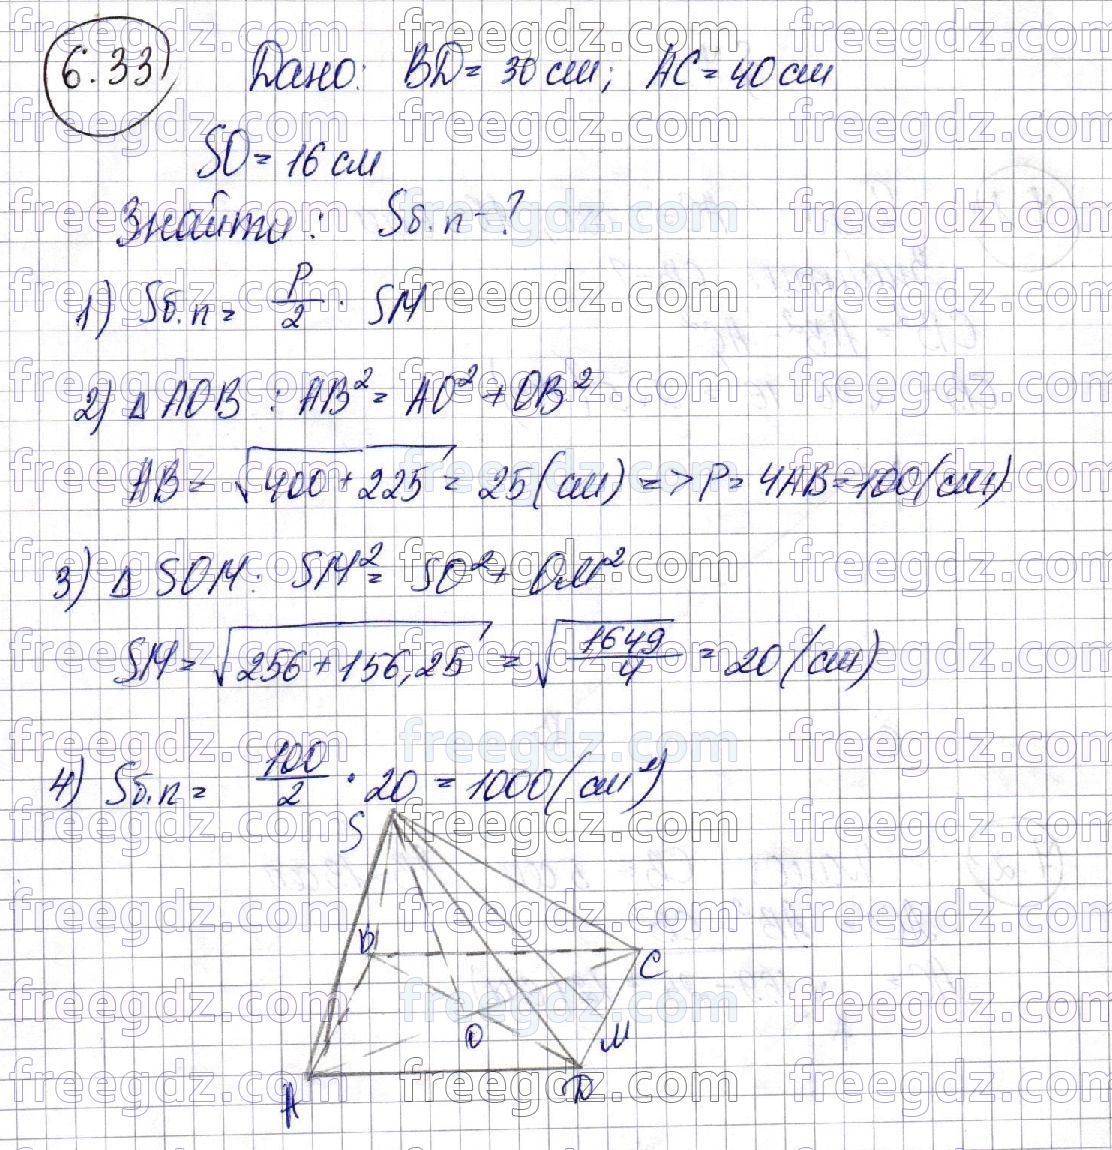 6.33
Дано: BD = 30 см; AC = 40 см
SO = 16 см
Знайти: Sб.п - ?
1) Sб.п = P/2 · SM
2) △ AOB : AB² = AO² + OB²
AB = √400 + 225 = 25 (см) => P = 4AB = 100 (см)
3) △ SOM: SM² = SO² + OM²
SM = √256 + 156,25 = √1649/4 = 20 (см)
4) Sб.п = 100/2 · 20 = 1000 (см²)
S
B
C
O
M
A
D
freegdz.com